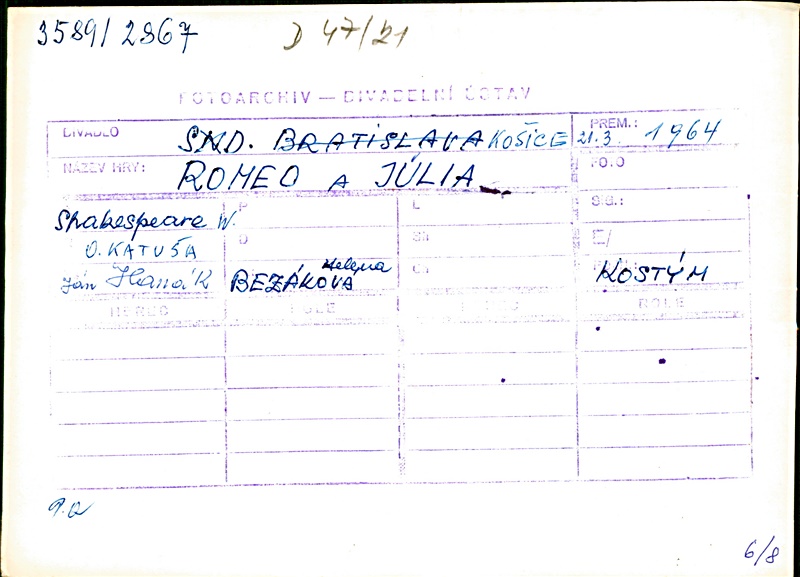 3589/2867 D 47/21
FOTOARCHIV — DIVADELNÍ ÚSTAV
DIVADLO SND. BRATISLAVA KOŠICE PREM.: 21.3. 1964
NÁZEV HRY: ROMEO A JÚLIA FOTO
Shakespeare W. P L SIG.:
O. KATUŠA D SN E/
Ján Hanák BEZÁKOVÁ Helena CH KOSTÝM
HEREC ROLE HEREC ROLE
6/8